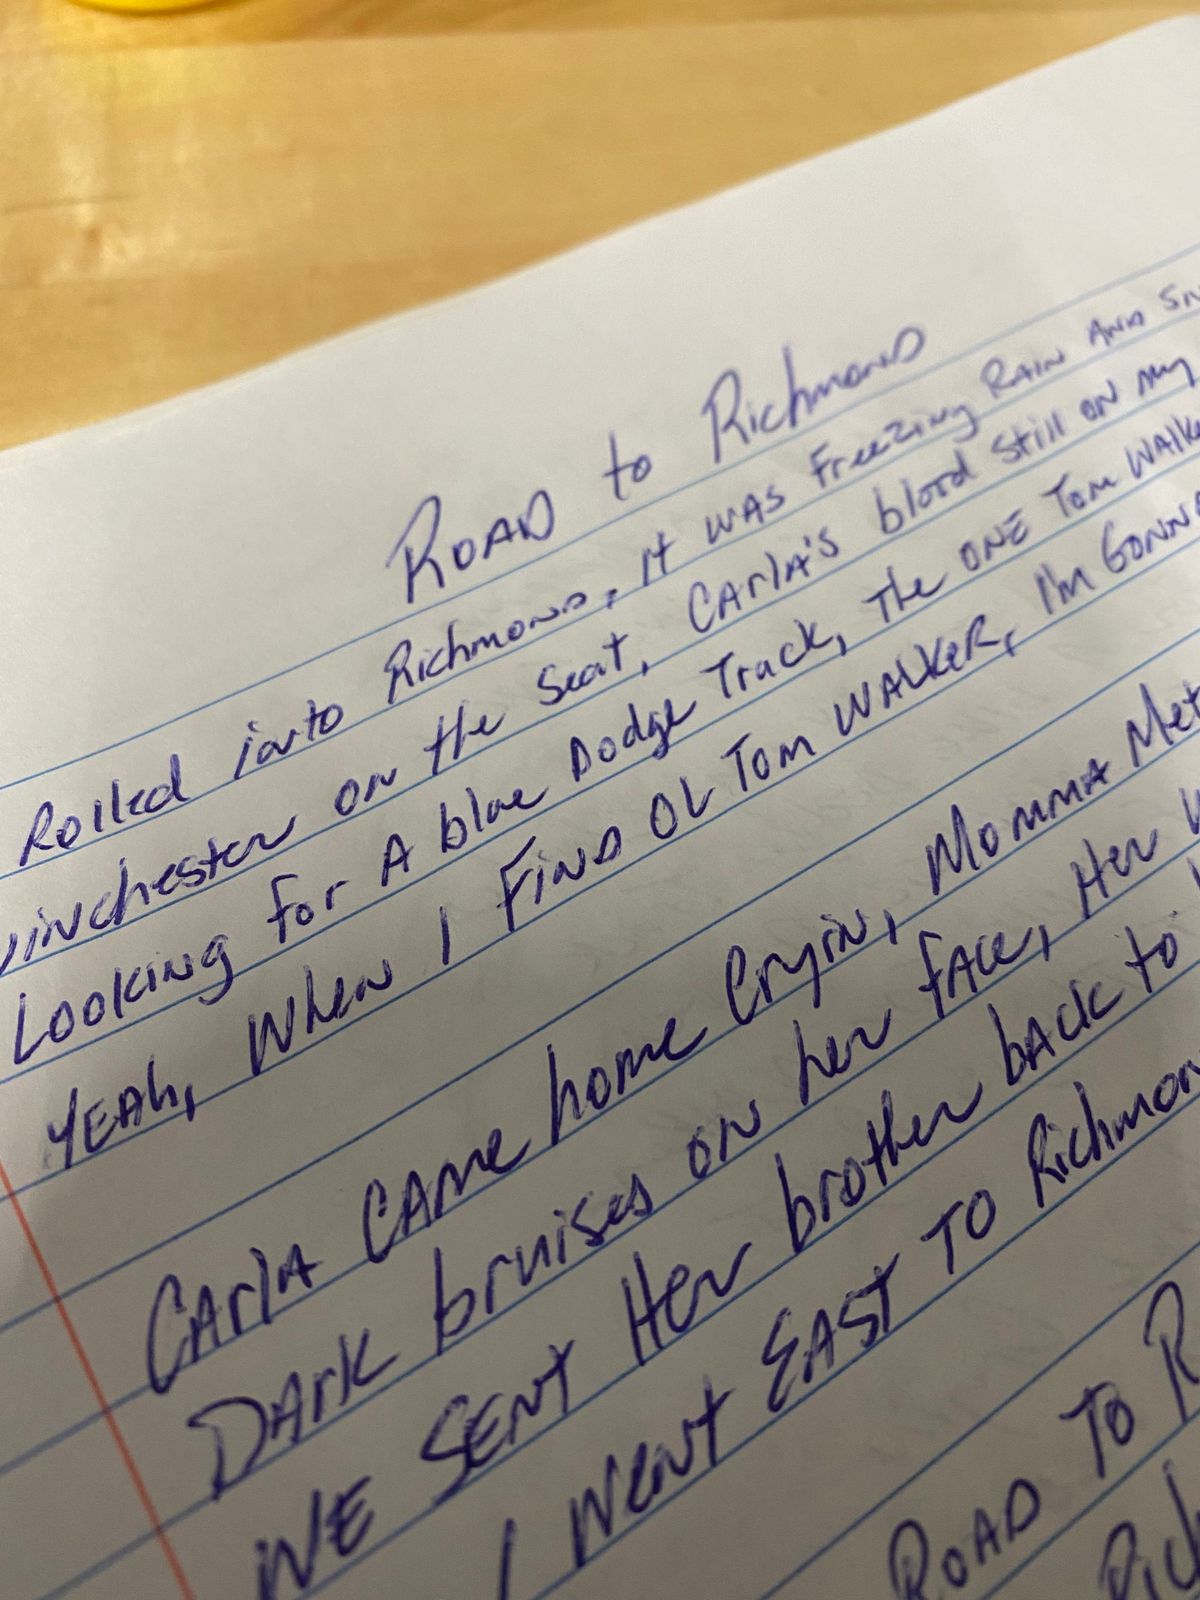 ROAD to Richmond
Rolled into Richmond, it WAS Freezing RAIN AND
Winchester on the Seat, CArlA's blood still on my
Looking for A blue Dodge Truck, The ONE Tom WAlker
YEAh, When I FinD OL Tom WALKER, I'm GONNA
CArlA CAme home Cryin, MommA Met
DArk bruises on her FAce, Her
WE SENT Her brother bAck to
I Went EAST TO Richmon
ROAD TO R
Rich